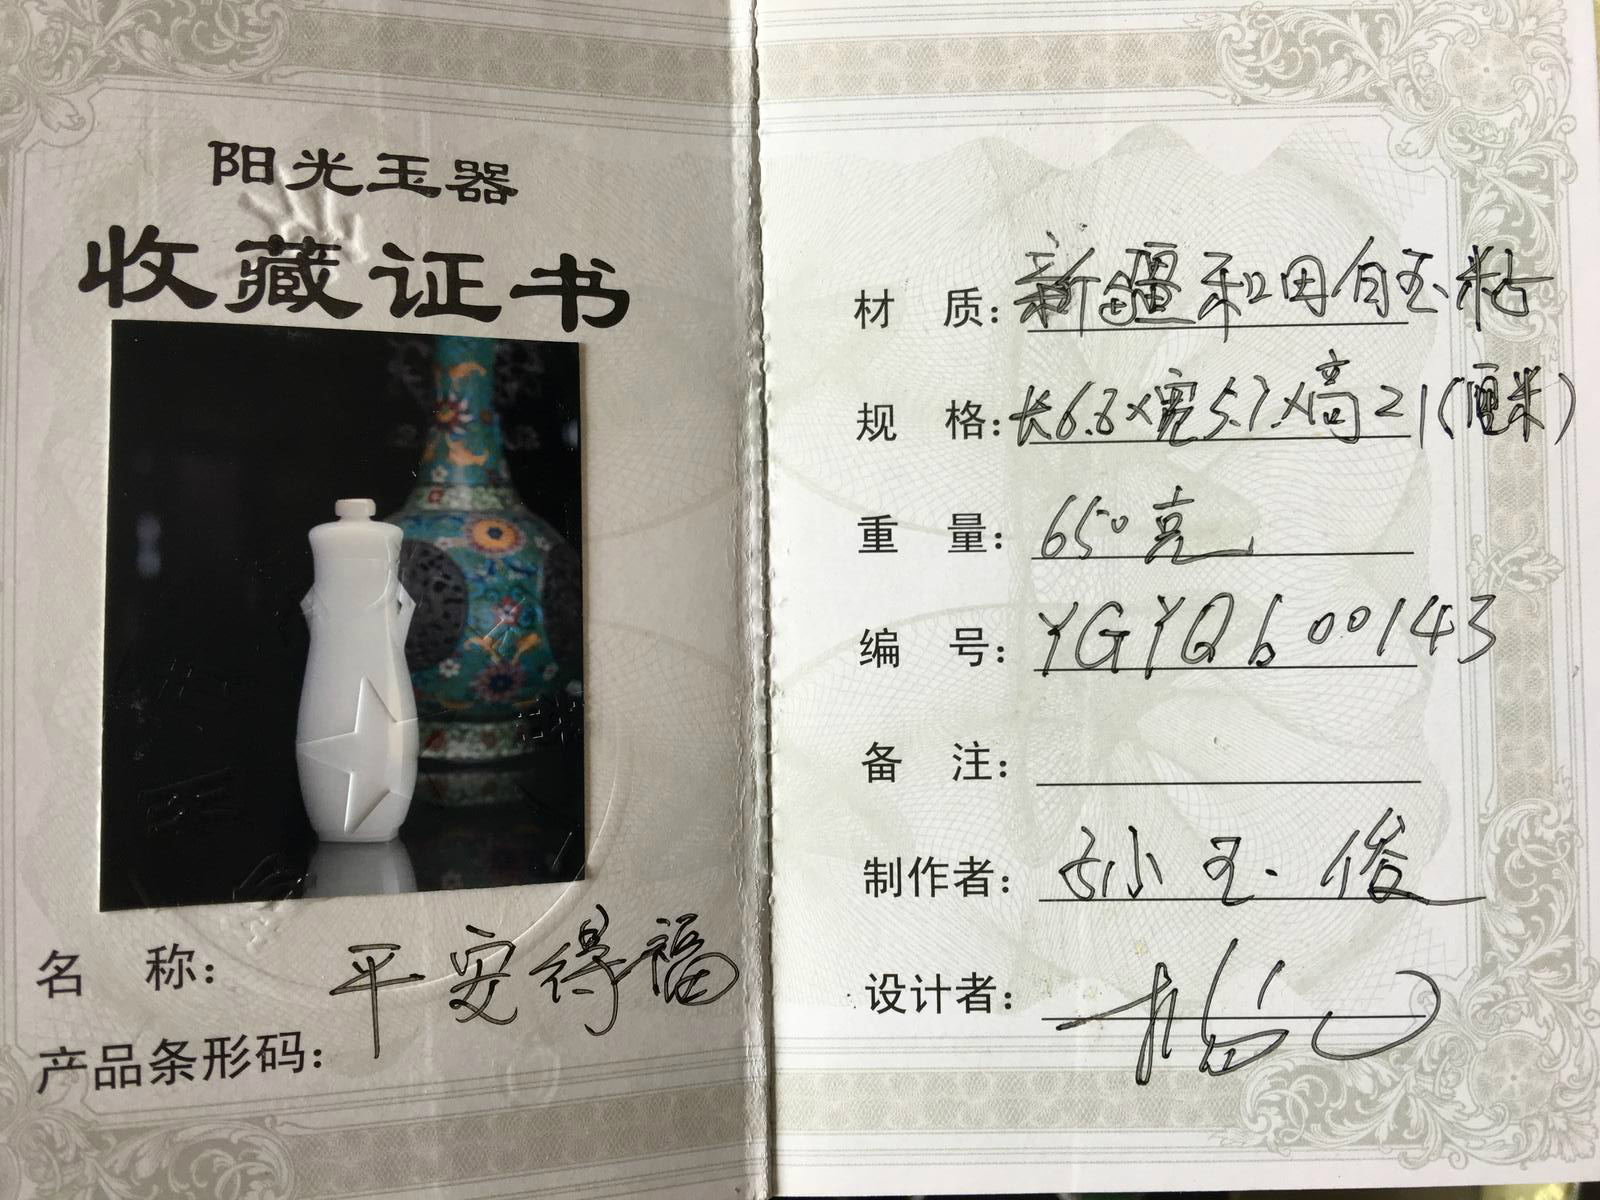 阳光玉器
收藏证书
名 称：平安得福
产品条形码：
材 质：新疆和田白玉粘
规 格：长6.8×宽5.7×高21(厘米)
重 量：650克
编 号：YGYQb00143
备 注：
制作者：孙玉俊
设计者：